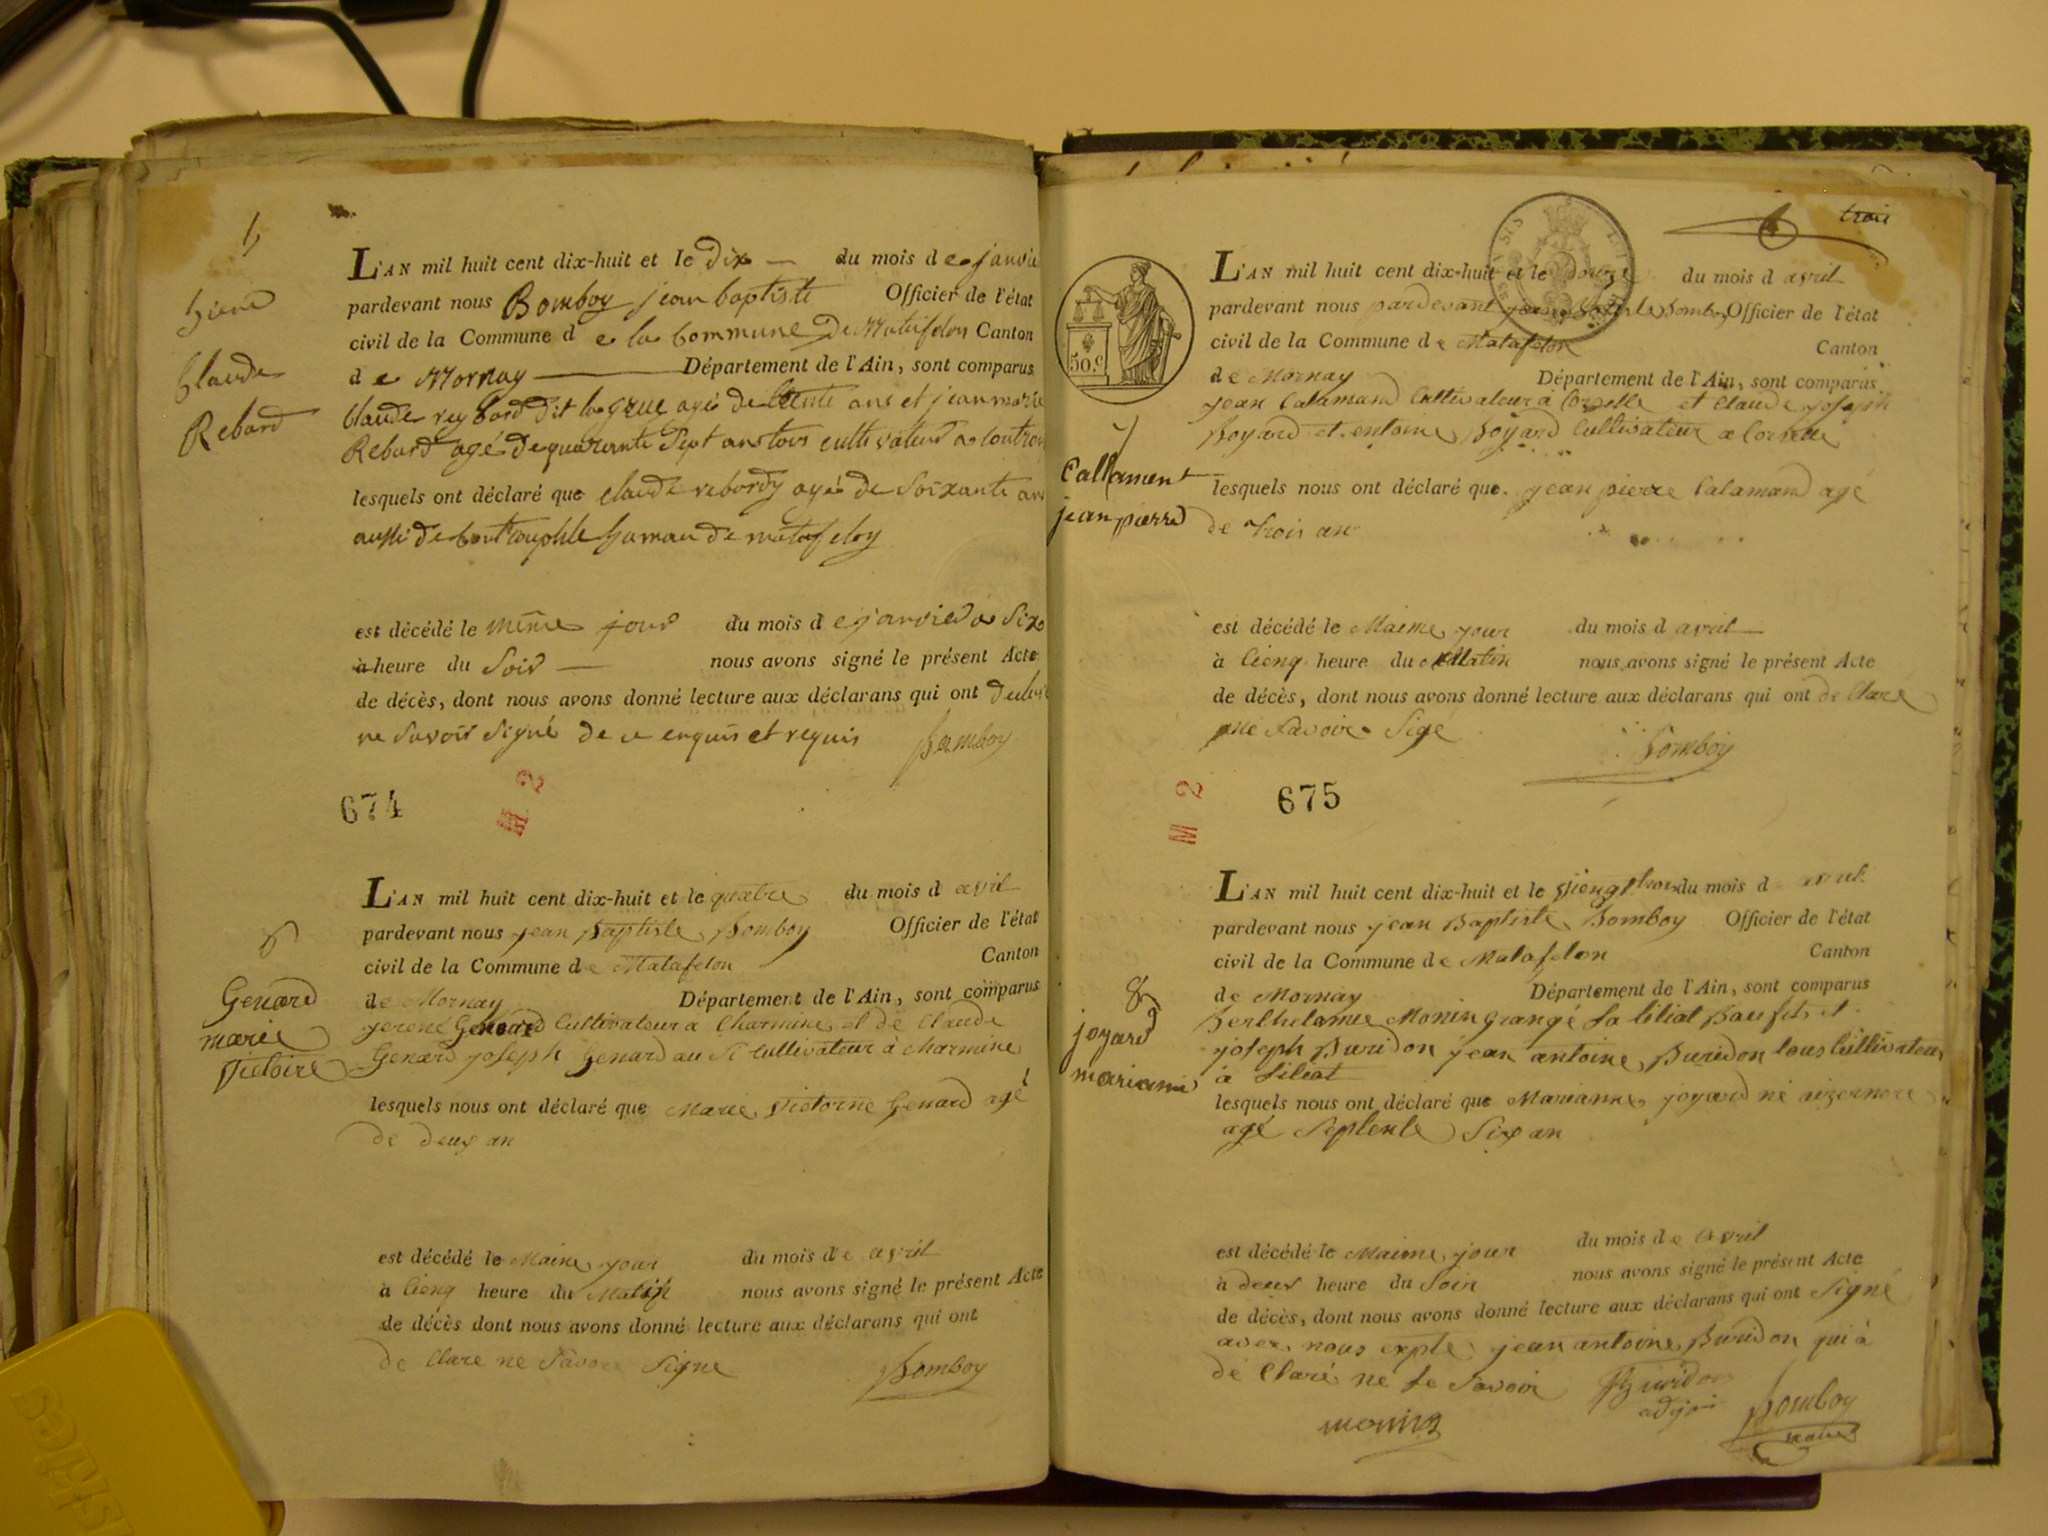 5
Claude
Rebard
L'AN mil huit cent dix-huit et le Dix du mois de janvie
pardevant nous Bomboy jean baptiste Officier de l'état
civil de la Commune d e la Commune De Matafelon Canton
de Mornay Département de l'Ain, sont comparus
Claude reybard dit la grue agé de trente ans et jean marie
Rebard agé De quarante Sept ans tous cultivateur a
lesquels ont déclaré que Claude rebordy agé de Soixante an
aussi de
est décédé le même jour du mois d e janvier a Six
à heure du Soir nous avons signé le présent Acte
de décès, dont nous avons donné lecture aux déclarans qui ont
ne Savoir Signé De ce enquis et requis Bomboy
674
M 2
6
Genard
marie
Victoire
L'AN mil huit cent dix-huit et le quatre du mois d avril
pardevant nous jean Baptiste Bomboy Officier de l'état
civil de la Commune de Matafelon Canton
de Mornay Département de l'Ain, sont comparus
Genard Cultivateur a Charmine et de Claude
Genard joseph Genard au Si Cultivateur à Charmine
lesquels nous ont déclaré que Marie Victorine Genard agé
de deux an
est décédé le Maime jour du mois de avril
à Cienq heure du Matin nous avons signé le présent Acte
de décès dont nous avons donné lecture aux déclarans qui ont
de Clare ne Savoir Signe Bomboy
trois
50.c
7
Callament
jean pierre
L'AN mil huit cent dix-huit et le douze du mois d avril
pardevant nous pardevant jean Batiste Bomboy Officier de l'état
civil de la Commune de Matafelon Canton
de Mornay Département de l'Ain, sont comparus
jean Calamand Cultivateur a Corcelle et Claude joseph
Boyard et entoine Boyard Cultivateur a Corcelle
lesquels nous ont déclaré que jean pierre Calamand agé
de trois an
est décédé le Maime jour du mois d avril
à Cienq heure du Matin nous avons signé le présent Acte
de décès, dont nous avons donné lecture aux déclarans qui ont de Claré
ne Savoir Sigé
Bomboy
M 2
675
8
joyard
marianne
L'AN mil huit cent dix-huit et le Viengt trois du mois d avril
pardevant nous jean Baptiste Bomboy Officier de l'état
civil de la Commune de Matafelon Canton
de Mornay Département de l'Ain, sont comparus
Berthelemie Monin grangé a Siliat et
joseph Buridon jean antoine Buridon tous Cultivateur
a Siliat
lesquels nous ont déclaré que Marianne joyard né
agé Septente Six an
est décédé le Maime jour du mois de avril
à deux heure du Soir nous avons signé le présent Acte
de décès, dont nous avons donné lecture aux déclarans qui ont Signé
avec nous expte jean antoine Buridon qui à
dé Claré ne le Savoir Buridon
monin adjoi Bomboy
maire